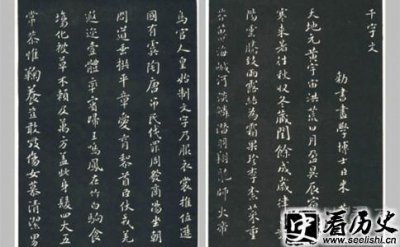 千字文
勅書畫學博士臣米
天地元黃宇宙洪荒日月盈昃辰宿
寒來暑往秋收冬藏閏餘成歲律
陽雲騰致雨露結為霜果珍李柰菜重
海鹹河淡鱗潛羽翔龍師火帝
鳥官人皇始制文字乃服衣裳推位遜
國有虞陶唐弔民伐罪周發商湯坐朝
問道垂拱平章愛育黎首臣伏戎羌
遐邇壹體率賓歸王鳴鳳在樹白駒食
場化被草木賴及萬方蓋此身髮四大五
常恭惟鞠養豈敢毀傷女慕清潔男
看历史
www.seelishi.cn